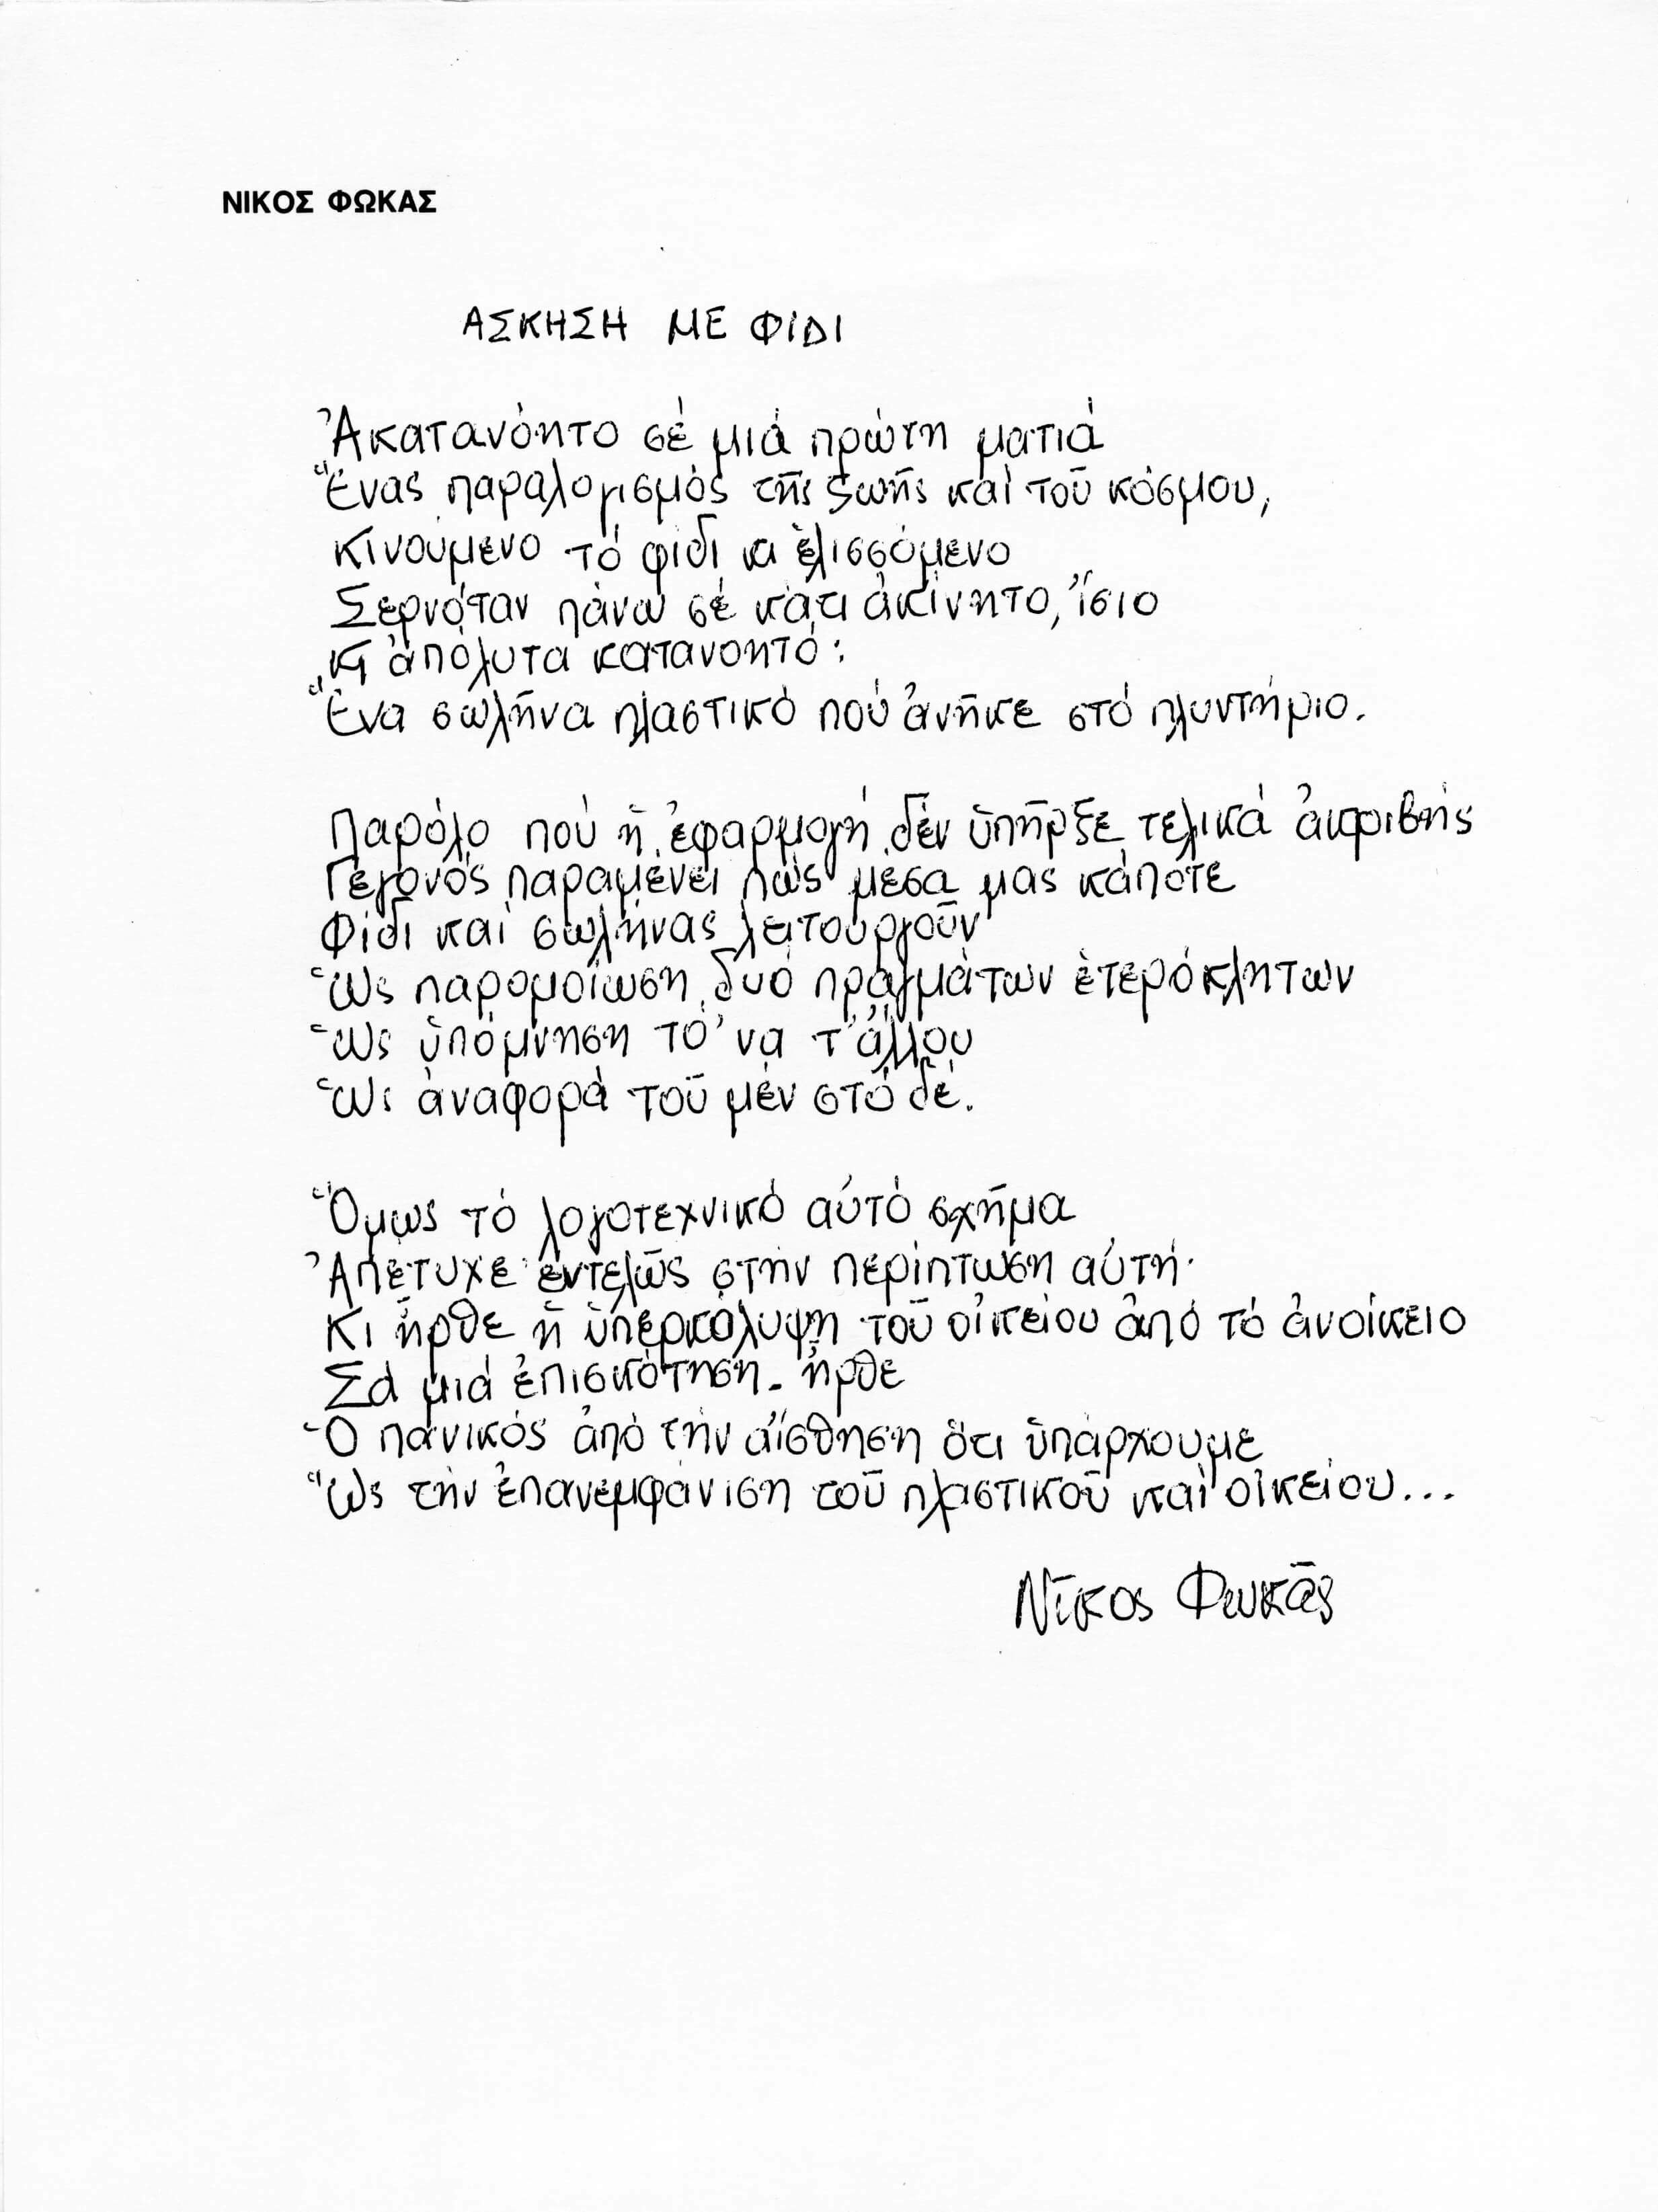 ΝΙΚΟΣ ΦΩΚΑΣ
ΑΣΚΗΣΗ ΜΕ ΦΙΔΙ
Ἀκατανόητο σέ μιά πρώτη ματιά
Ἕνας παραλογισμός τῆς ζωῆς καί τοῦ κόσμου,
Κινούμενο τό φίδι κι ἑλισσόμενο
Σερνόταν πάνω σέ κάτι ἀκίνητο, ἴσιο
Κι ἀπόλυτα κατανοητό:
Ἕνα σωλῆνα πλαστικό πού ἀνῆκε στό πλυντήριο.
Παρόλο πού ἡ ἐφαρμογή δέν ὑπῆρξε τελικά ἀκριβής
Γεγονός παραμένει πώς μέσα μας κάποτε
Φίδι καί σωλήνας λειτουργοῦν
Ὡς παρομοίωση δυό πραγμάτων ἑτερόκλητων
Ὡς ὑπόμνηση τό' να τ' ἄλλου
Ὡς ἀναφορά τοῦ μέν στό δέ.
Ὅμως τό λογοτεχνικό αὐτό σχῆμα
Ἀπέτυχε ἐντελῶς στήν περίπτωση αὐτή·
Κι ἦρθε ἡ ὑπερκάλυψη τοῦ οἰκείου ἀπό τό ἀνοίκειο
Σά μιά ἐπισκότηση. ἦρθε
Ὁ πανικός ἀπό τήν αἴσθηση ὅτι ὑπάρχουμε
Ὥς τήν ἐπανεμφάνιση τοῦ πλαστικοῦ καί οἰκείου...
Νῖκος Φωκᾶς